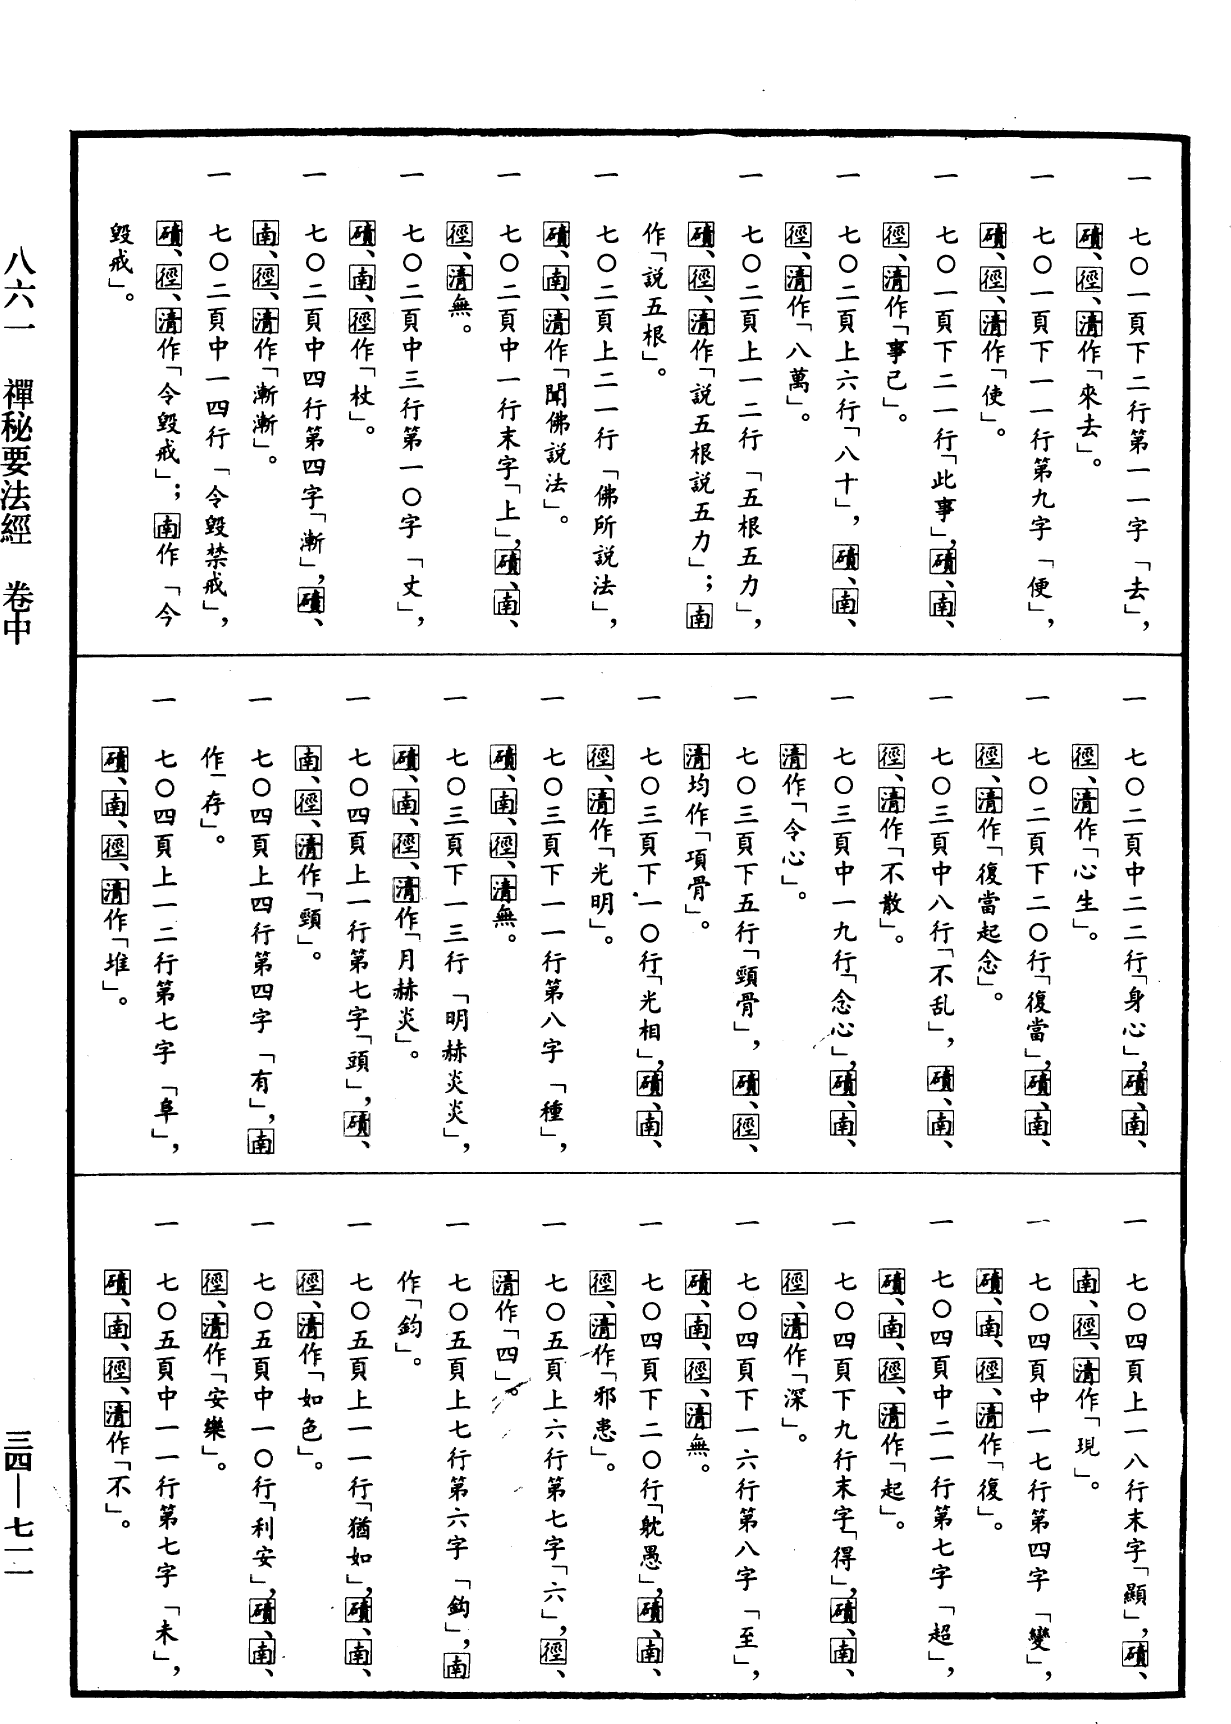 一　七〇一頁下二行第一一字「去」，
磧、徑、清作「來去」。
一　七〇一頁下一一行第九字「便」，
磧、徑、清作「使」。
一　七〇一頁下二一行「此事」，磧、南、
徑、清作「事已」。
一　七〇二頁上六行「八十」，磧、南、
徑、清作「八萬」。
一　七〇二頁上一二行「五根五力」，
磧、徑、清作「説五根説五力」；南
作「説五根」。
一　七〇二頁上二一行「佛所説法」，
磧、南、清作「聞佛説法」。
一　七〇二頁中一行末字「上」，磧、南、
徑、清無。
一　七〇二頁中三行第一〇字「丈」，
磧、南、徑作「杖」。
一　七〇二頁中四行第四字「漸」，磧、
南、徑、清作「漸漸」。
一　七〇二頁中一四行「令毀禁戒」，
磧、徑、清作「令毀戒」；南作「今
毀戒」。
一　七〇二頁中二二行「身心」，磧、南、
徑、清作「心生」。
一　七〇二頁下二〇行「復當」，磧、南、
徑、清作「復當起念」。
一　七〇三頁中八行「不乱」，磧、南、
徑、清作「不散」。
一　七〇三頁中一九行「念心」，磧、南、
清作「令心」。
一　七〇三頁下五行「頸骨」，磧、徑、
清均作「項骨」。
一　七〇三頁下一〇行「光相」，磧、南、
徑、清作「光明」。
一　七〇三頁下一一行第八字「種」，
磧、南、徑、清無。
一　七〇三頁下一三行「明赫炎炎」，
磧、南、徑、清作「月赫炎」。
一　七〇四頁上一行第七字「頭」，磧、
南、徑、清作「頸」。
一　七〇四頁上四行第四字「有」，南
作「存」。
一　七〇四頁上一二行第七字「阜」，
磧、南、徑、清作「堆」。
一　七〇四頁上一八行末字「顯」，磧、
南、徑、清作「現」。
一　七〇四頁中一七行第四字「變」，
磧、南、徑、清作「復」。
一　七〇四頁中二一行第七字「超」，
磧、南、徑、清作「起」。
一　七〇四頁下九行末字「得」，磧、南、
徑、清作「深」。
一　七〇四頁下一六行第八字「至」，
磧、南、徑、清無。
一　七〇四頁下二〇行「躭愚」，磧、南、
徑、清作「邪患」。
一　七〇五頁上六行第七字「六」，徑、
清作「四」。
一　七〇五頁上七行第六字「鈎」，南
作「鈞」。
一　七〇五頁上一一行「猶如」，磧、南、
徑、清作「如色」。
一　七〇五頁中一〇行「利安」，磧、南、
徑、清作「安樂」。
一　七〇五頁中一一行第七字「未」，
磧、南、徑、清作「不」。
八六一　禪秘要法經　卷中
三四—七一一